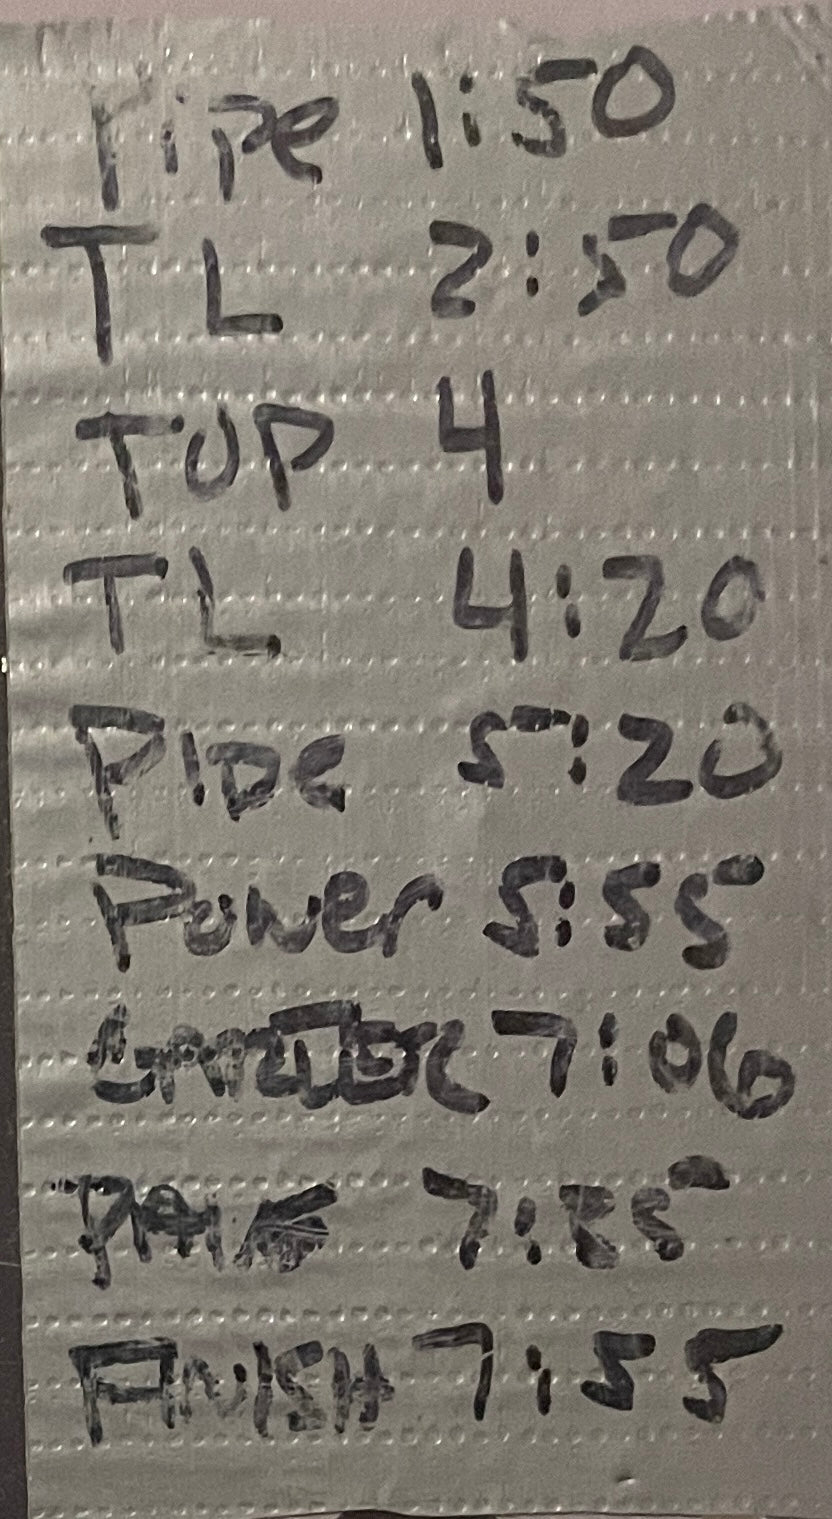 Pipe 1:50
TL 2:50
TOP 4
TL 4:20
Pipe 5:20
Power 5:55
7:06
7:
FINISH 7:55